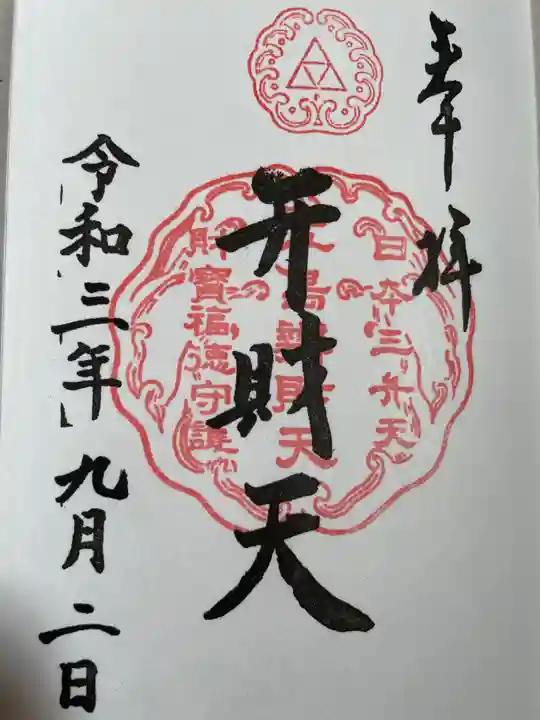 奉拝
日本三弁天
江島辨財天
財寶福徳守護
弁財天
令和三年九月二日